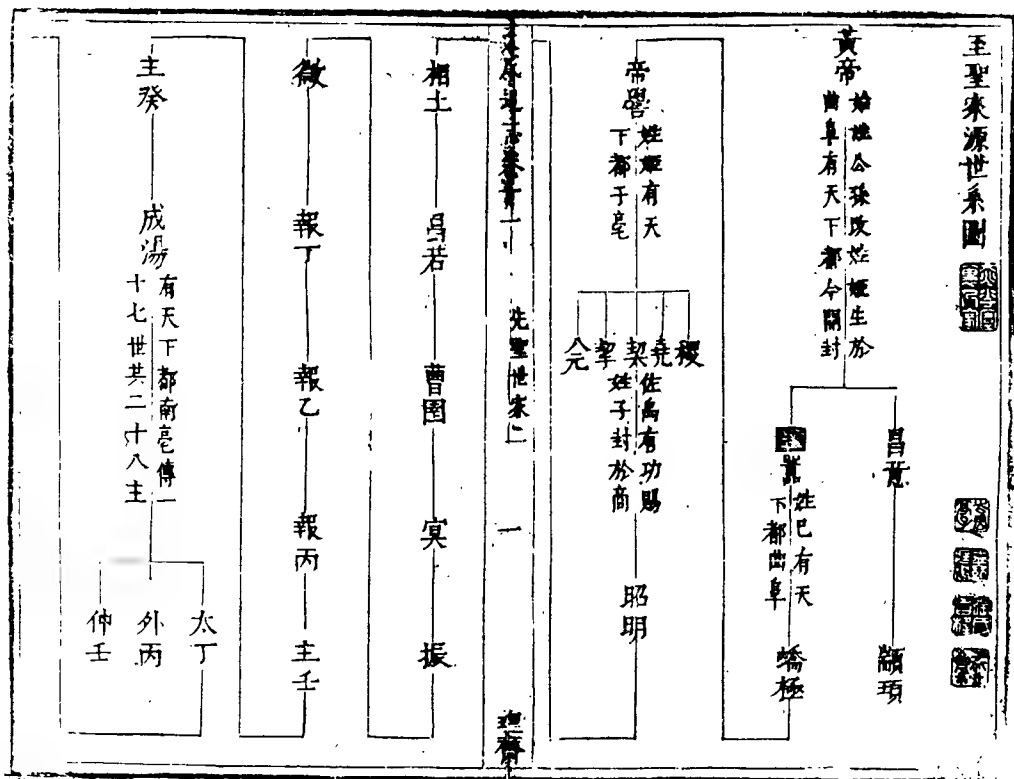 至聖來源世系圖
黃帝
始姓公孫改姓姬生於
曲阜有天下都今開封
昌意
顓頊
囂
姓巳有天
下都曲阜
蟜極
帝嚳
姓姬有天
下都于亳
稷
堯
契
佐禹有功賜
姓子封於商
摯
八元
昭明
先聖世家二
一
相土
昌若
曹圉
冥
振
微
報丁
報乙
報丙
主壬
主癸
成湯
有天下都南亳傳一
十七世共二十八主
太丁
外丙
仲壬